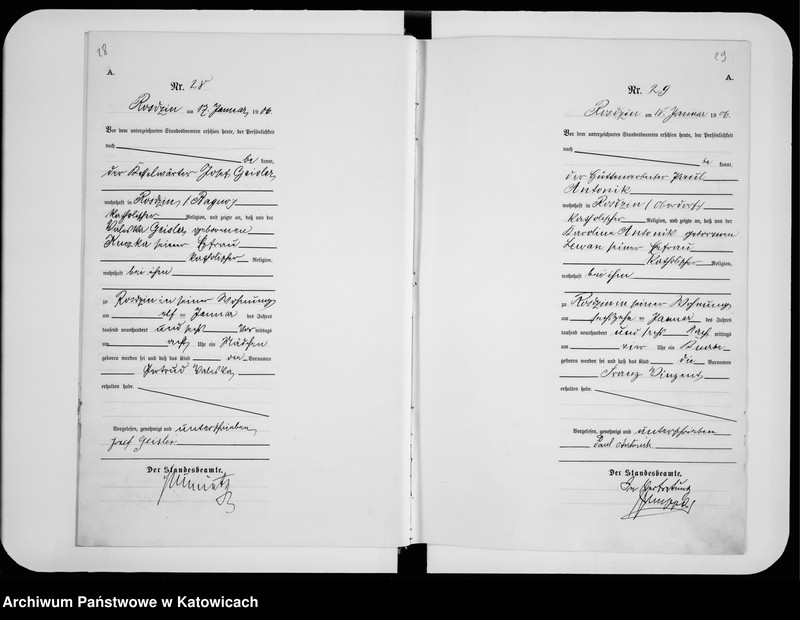 28
A.
Nr. 28
Rosdzin am 17. Januar 1906.
Vor dem unterzeichneten Standesbeamten erschien heute, der Persönlichkeit
nach
be kannt,
der Kesselwärter Josef Geisler
wohnhaft in Rosdzin
katholischer Religion, und zeigte an, daß von der
Valeska Geisler geborenen
seiner Ehefrau
katholischer Religion,
wohnhaft bei ihm
zu Rosdzin in seiner Wohnung
am elf ten Januar des Jahres
tausend neunhundert und sechs Vor mittags
um acht Uhr ein Mädchen
geboren worden sei und daß das Kind die Vornamen
Gertrud Valeska
erhalten habe.
Vorgelesen, genehmigt und unterschrieben
Josef Geisler
Der Standesbeamte.
29
A.
Nr. 29
Rosdzin am Januar 1906.
Vor dem unterzeichneten Standesbeamten erschien heute, der Persönlichkeit
nach
be kannt,
der Hüttenarbeiter Paul
Antonik
wohnhaft in Rosdzin / Oberdorf
katholischer Religion, und zeigte an, daß von der
Karoline Antonik geborenen
seiner Ehefrau
katholischer Religion,
wohnhaft bei ihm
zu Rosdzin in seiner Wohnung
am ten Januar des Jahres
tausend neunhundert und sechs Nach mittags
um vier Uhr ein Knabe
geboren worden sei und daß das Kind die Vornamen
Franz Vinzent
erhalten habe.
Vorgelesen, genehmigt und unterschrieben
Paul Antonik
Der Standesbeamte.
In Vertretung
Archiwum Państwowe w Katowicach